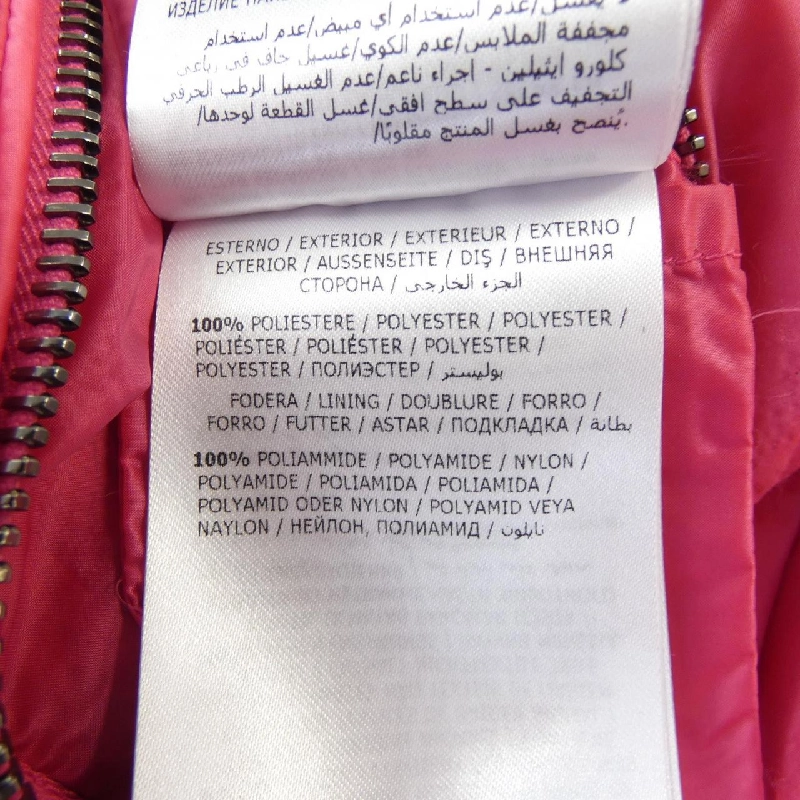 ИЗДЕЛИЕ
لا يغسل/عدم استخدام أي مبيض/عدم استخدام
مجففة الملابس/عدم الكوي/غسيل جاف في رباعي
كلورو ايثيلين - اجراء ناعم/عدم الغسيل الرطب الحرفي
التجفيف على سطح افقي/غسل القطعة لوحدها/
يُنصح بغسل المنتج مقلوبًا/.
ESTERNO / EXTERIOR / EXTERIEUR / EXTERNO /
EXTERIOR / AUSSENSEITE / DIŞ / ВНЕШНЯЯ
СТОРОНА / الجزء الخارجى
100% POLIESTERE / POLYESTER / POLYESTER /
POLIÉSTER / POLIÉSTER / POLYESTER /
POLYESTER / ПОЛИЭСТЕР / بوليستر
FODERA / LINING / DOUBLURE / FORRO /
FORRO / FUTTER / ASTAR / ПОДКЛАДКА / بطانة
100% POLIAMMIDE / POLYAMIDE / NYLON /
POLYAMIDE / POLIAMIDA / POLIAMIDA /
POLYAMID ODER NYLON / POLYAMID VEYA
NAYLON / НЕЙЛОН, ПОЛИАМИД / نايلون